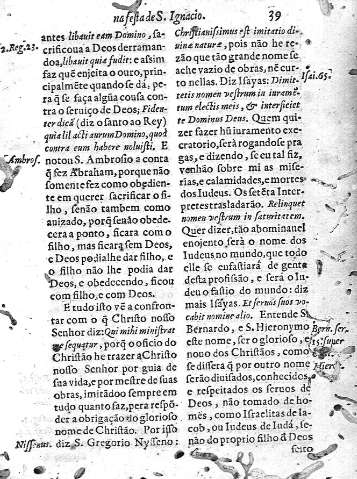 na festa de S. Ignacio. 39
antes libauit eam Domino, sa-
2. Reg. 23. crificoua a Deos derraman-
doa, libauit quia fudit: e assim
faz que enjeita o ouro, prin-
cipalmēte quando se dá, pe-
ra q̃ se faça algũa cousa con-
tra o seruiço de Deos; Fiden-
ter dicā (diz o santo ao Rey)
quia lil acti aurum Domino, quod
contra eum habere noluisti. E
Ambros. notou S. Ambrosio a conta
q̃ fez Abraham, porque não
somente fez como obedien-
te em querer sacrificar o fi-
lho, senão tambem como
auizado, porq̃ se não obede-
cera a ponto, ficara com o
filho, mas ficara sem Deos,
e Deos podialhe dar filho, e
o filho não lhe podia dar
Deos, e obedecendo, ficou
com filho, e com Deos.
E tudo isto vē a confron-
tar com o q̃ Christo nosso
Senhor diz: Qui mihi ministrat
me sequatur, porq̃ o officio do
Christão he trazer a Christo
nosso Senhor por guia de
sua vida, e por mestre de suas
obras, imitādoo sempre em
tudo quanto faz, pera respō-
der a obrigação do glorioso
nome de Christão. Por isso
Nissenus. diz S. Gregorio Nysseno:
Christianissimus est imitatio di-
uinæ naturæ, pois não he re-
zão que tão grande nome se
ache vazio de obras, nē cur-
to nellas. Diz Isayas: Dimit-
Isai. 65. tetis nomen vestrum in iuramē-
tum electis meis, & interficiet
te Dominus Deus. Quem qui-
zer fazer hũ iuramento exe-
cratorio, será rogandose pra-
gas, e dizendo, se eu tal fiz,
venhão sobre mi as mise-
rias, e calamidades, e mortes
dos Iudeus. Os setēta Inter-
pretes trasladarão. Relinquet
nomen vestrum in saturitatem.
Quer dizer, tão abominauel
e nojento será o nome dos
Iudeus no mundo, que todo
elle se enfastiará de gente
desta profissão, e será o Iu-
deu o fastio do mundo: diz
mais Isayas. Et seruis suos vo-
cabit nomine alio. Entende S.
Bernardo, e S. Hieronymo Bern. ser.
este nome, ser o glorioso, e 15. super
nouo dos Christãos, como
se dissera q̃ por outro nome Hier.
serão diuisados, conhecidos,
e respeitados os seruos de
Deos, não tomado de ho-
mēs, como Israelitas de Ia-
cob, ou Iudeus de Iudá, se-
não do proprio filho d̃ Deos
feito